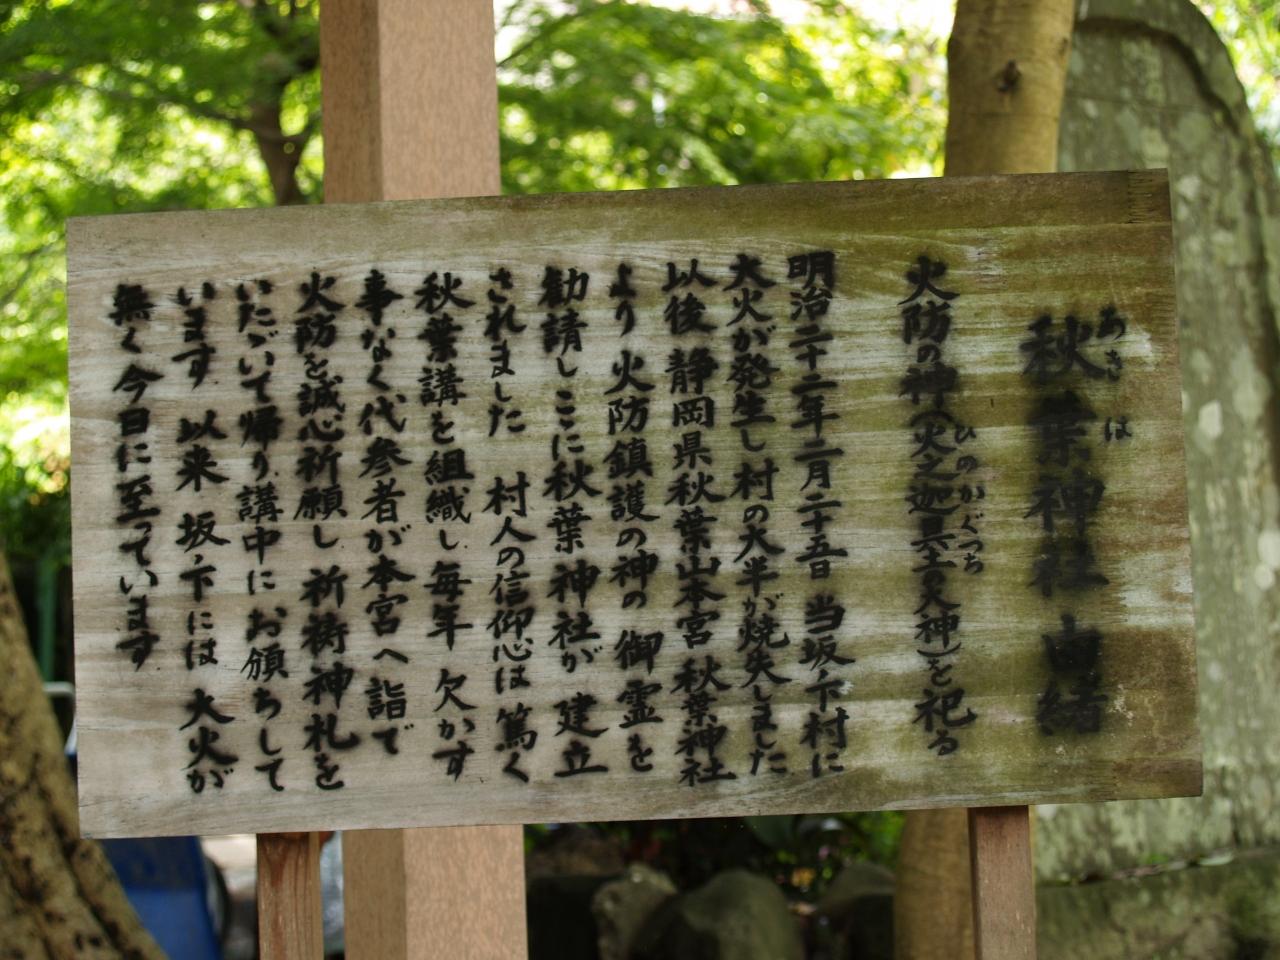 秋葉神社 由緒
あきは
火防の神(火之迦具土の大神)を祀る
ひのかぐつち
明治二十二年二月二十五日 当坂ノ下村に
大火が発生し村の大半が焼失しました
以後 静岡県秋葉山本宮 秋葉神社
より 火防鎮護の神の 御霊を
勧請しここに秋葉神社が 建立
されました 村人の信仰心は篤く
秋葉講を組織し毎年 欠かす
事なく代参者が本宮へ詣で
火防を誠心祈願し 祈祷神札を
いたゞいて帰り講中にお頒ちして
います 以来 坂ノ下には 大火が
無く今日に至っています